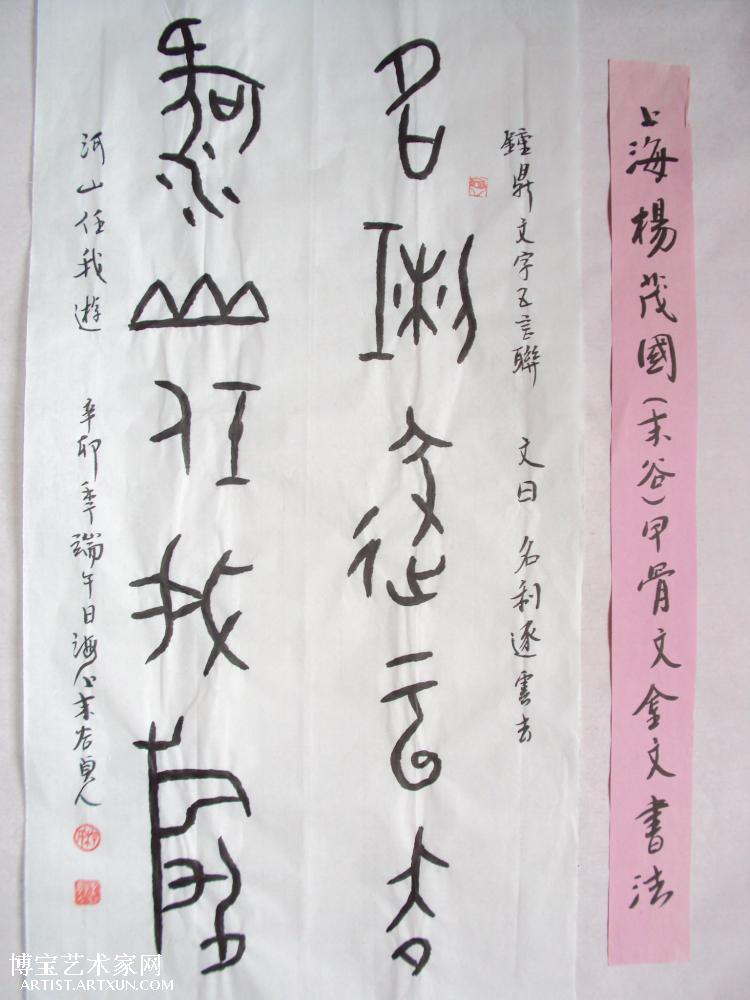 上海楊茂國(耒谷)甲骨文金文書法
鐘鼎文字五言聯 文曰 名利逐雲去
名利逐云去
河山任我遊
河山任我遊 辛卯年瑞午日海上耒谷貞人
博宝艺术家网
ARTIST.ARTXUN.COM